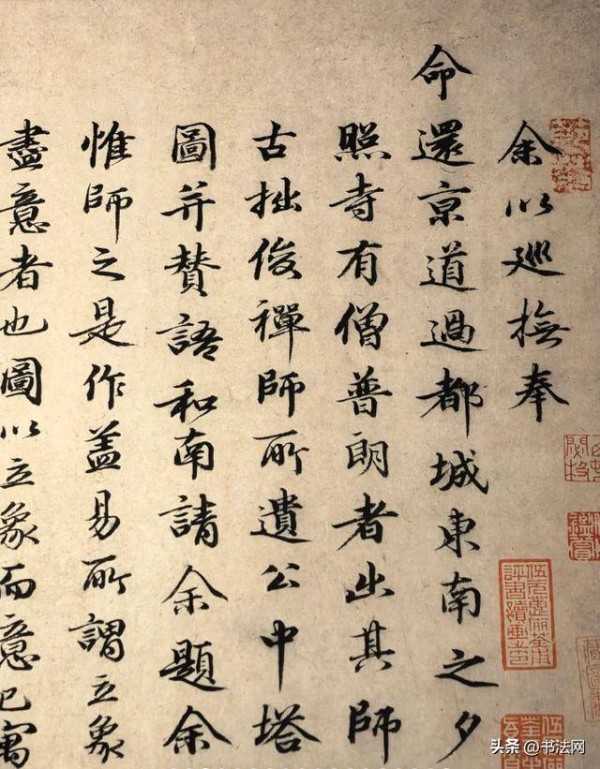 余以廵撫奉
命還京道過都城東南之夕
照寺有僧普朗者出其師
古拙俊禪師所遺公中塔
圖并賛語和南請余題余
惟師之是作盖易所謂立象
盡意者也圖以立象而意已寓
头条@书法网